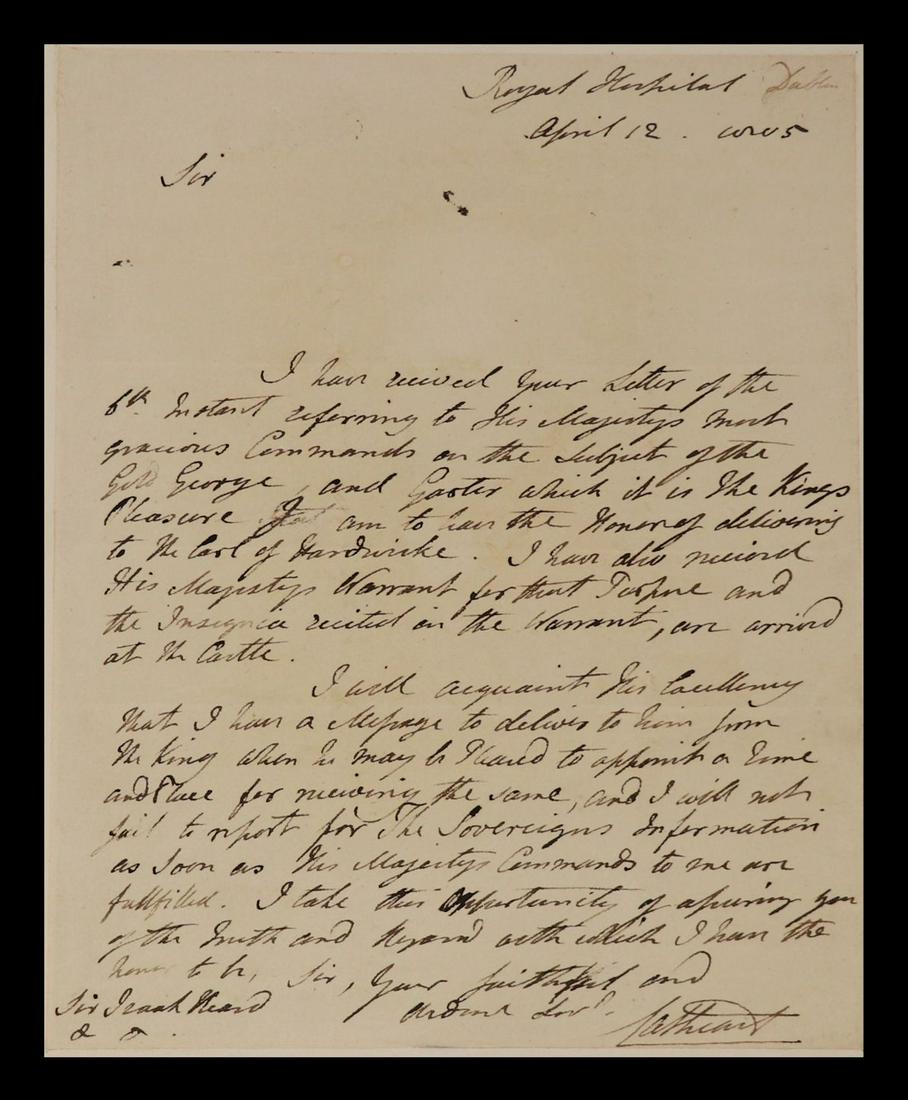 Royal Hospital Dublin
April 12. 1805
Sir
I have received your Letter of the
6th. Instant referring to His Majestys most
gracious Commands on the Subject of the
Gold George, and Garter which it is The Kings
Pleasure I am to have the Honor of delivering
to the Earl of Hardwicke. I have also received
His Majestys Warrant for that Purpose and
the Insignia recited in the Warrant, are arrived
at the Castle.
I will acquaint His Excellency
that I have a Message to deliver to him from
the King when he may be Pleased to appoint a Time
and Place for receiving the same, and I will not
fail to report for The Sovereigns Information
as soon as His Majestys Commands to me are
fullfilled. I take this Opportunity of assuring you
of the truth and Regard with which I have the
honor to be, Sir, Your faithful and
Servt.
Sir Isaak Heard
Cathcart